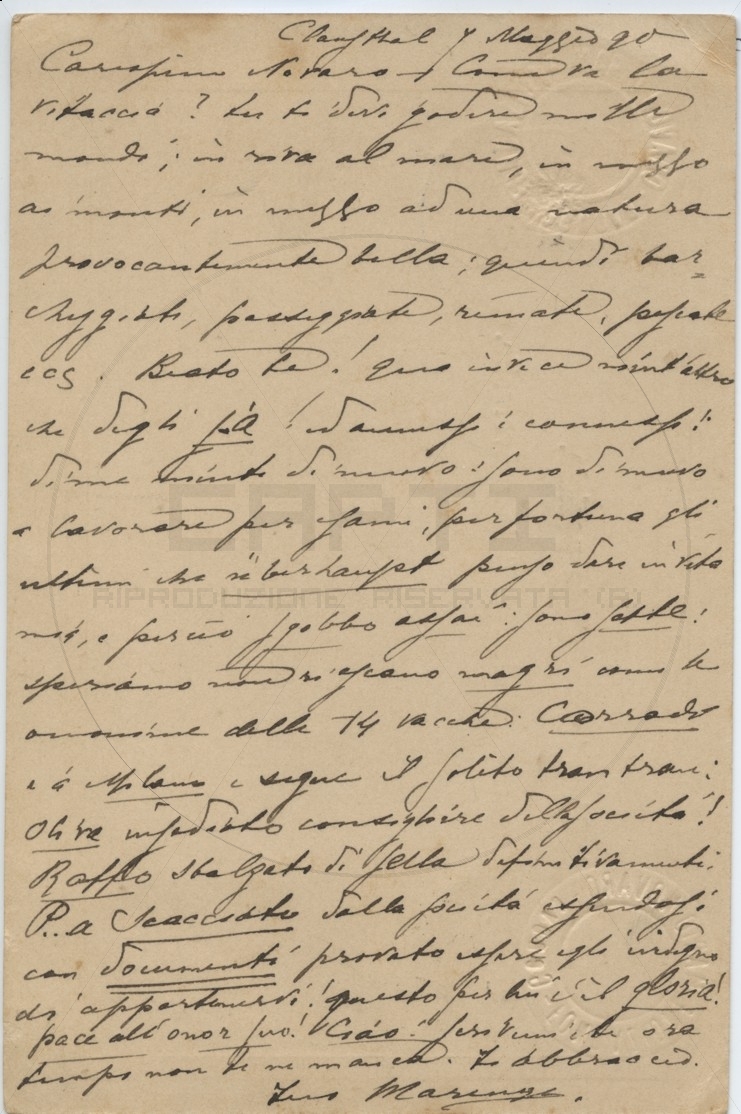 Clausthal 7 Maggio 90
Carissimo Novaro – Come va la
vitaccia? tu ti devi godere mezzo
mondo; in riva al mare, in mezzo
ai monti, in mezzo ad una natura
provocantemente bella; quindi bar=
cheggiate, passeggiate, remate, pescate
ecc. Beato te! qua invece nient'altro
che degli ja! ed annessi i connessi!
di me niente di nuovo: sono di nuovo
a lavorare per esami, per fortuna gli
ultimi che überhaupt posso dare in vita
mia, e perciò sgobbo assai: sono sette!
speriamo non riescano magri come le
omonime delle 14 vacche: Corrado
è a Milano e segue il solito tran tran:
Oliva consigliere della società!
Raffo sbalzato di sella definitivamente:
P.. a Scacciato dalla società essendosi
con documenti provato essere egli indegno
di appartenervi! questo per lui è il gloria!
pace all'onor suo! Ciao! scrivimi che ora
tempo non te ne manca. Ti abbraccio.
Tuo